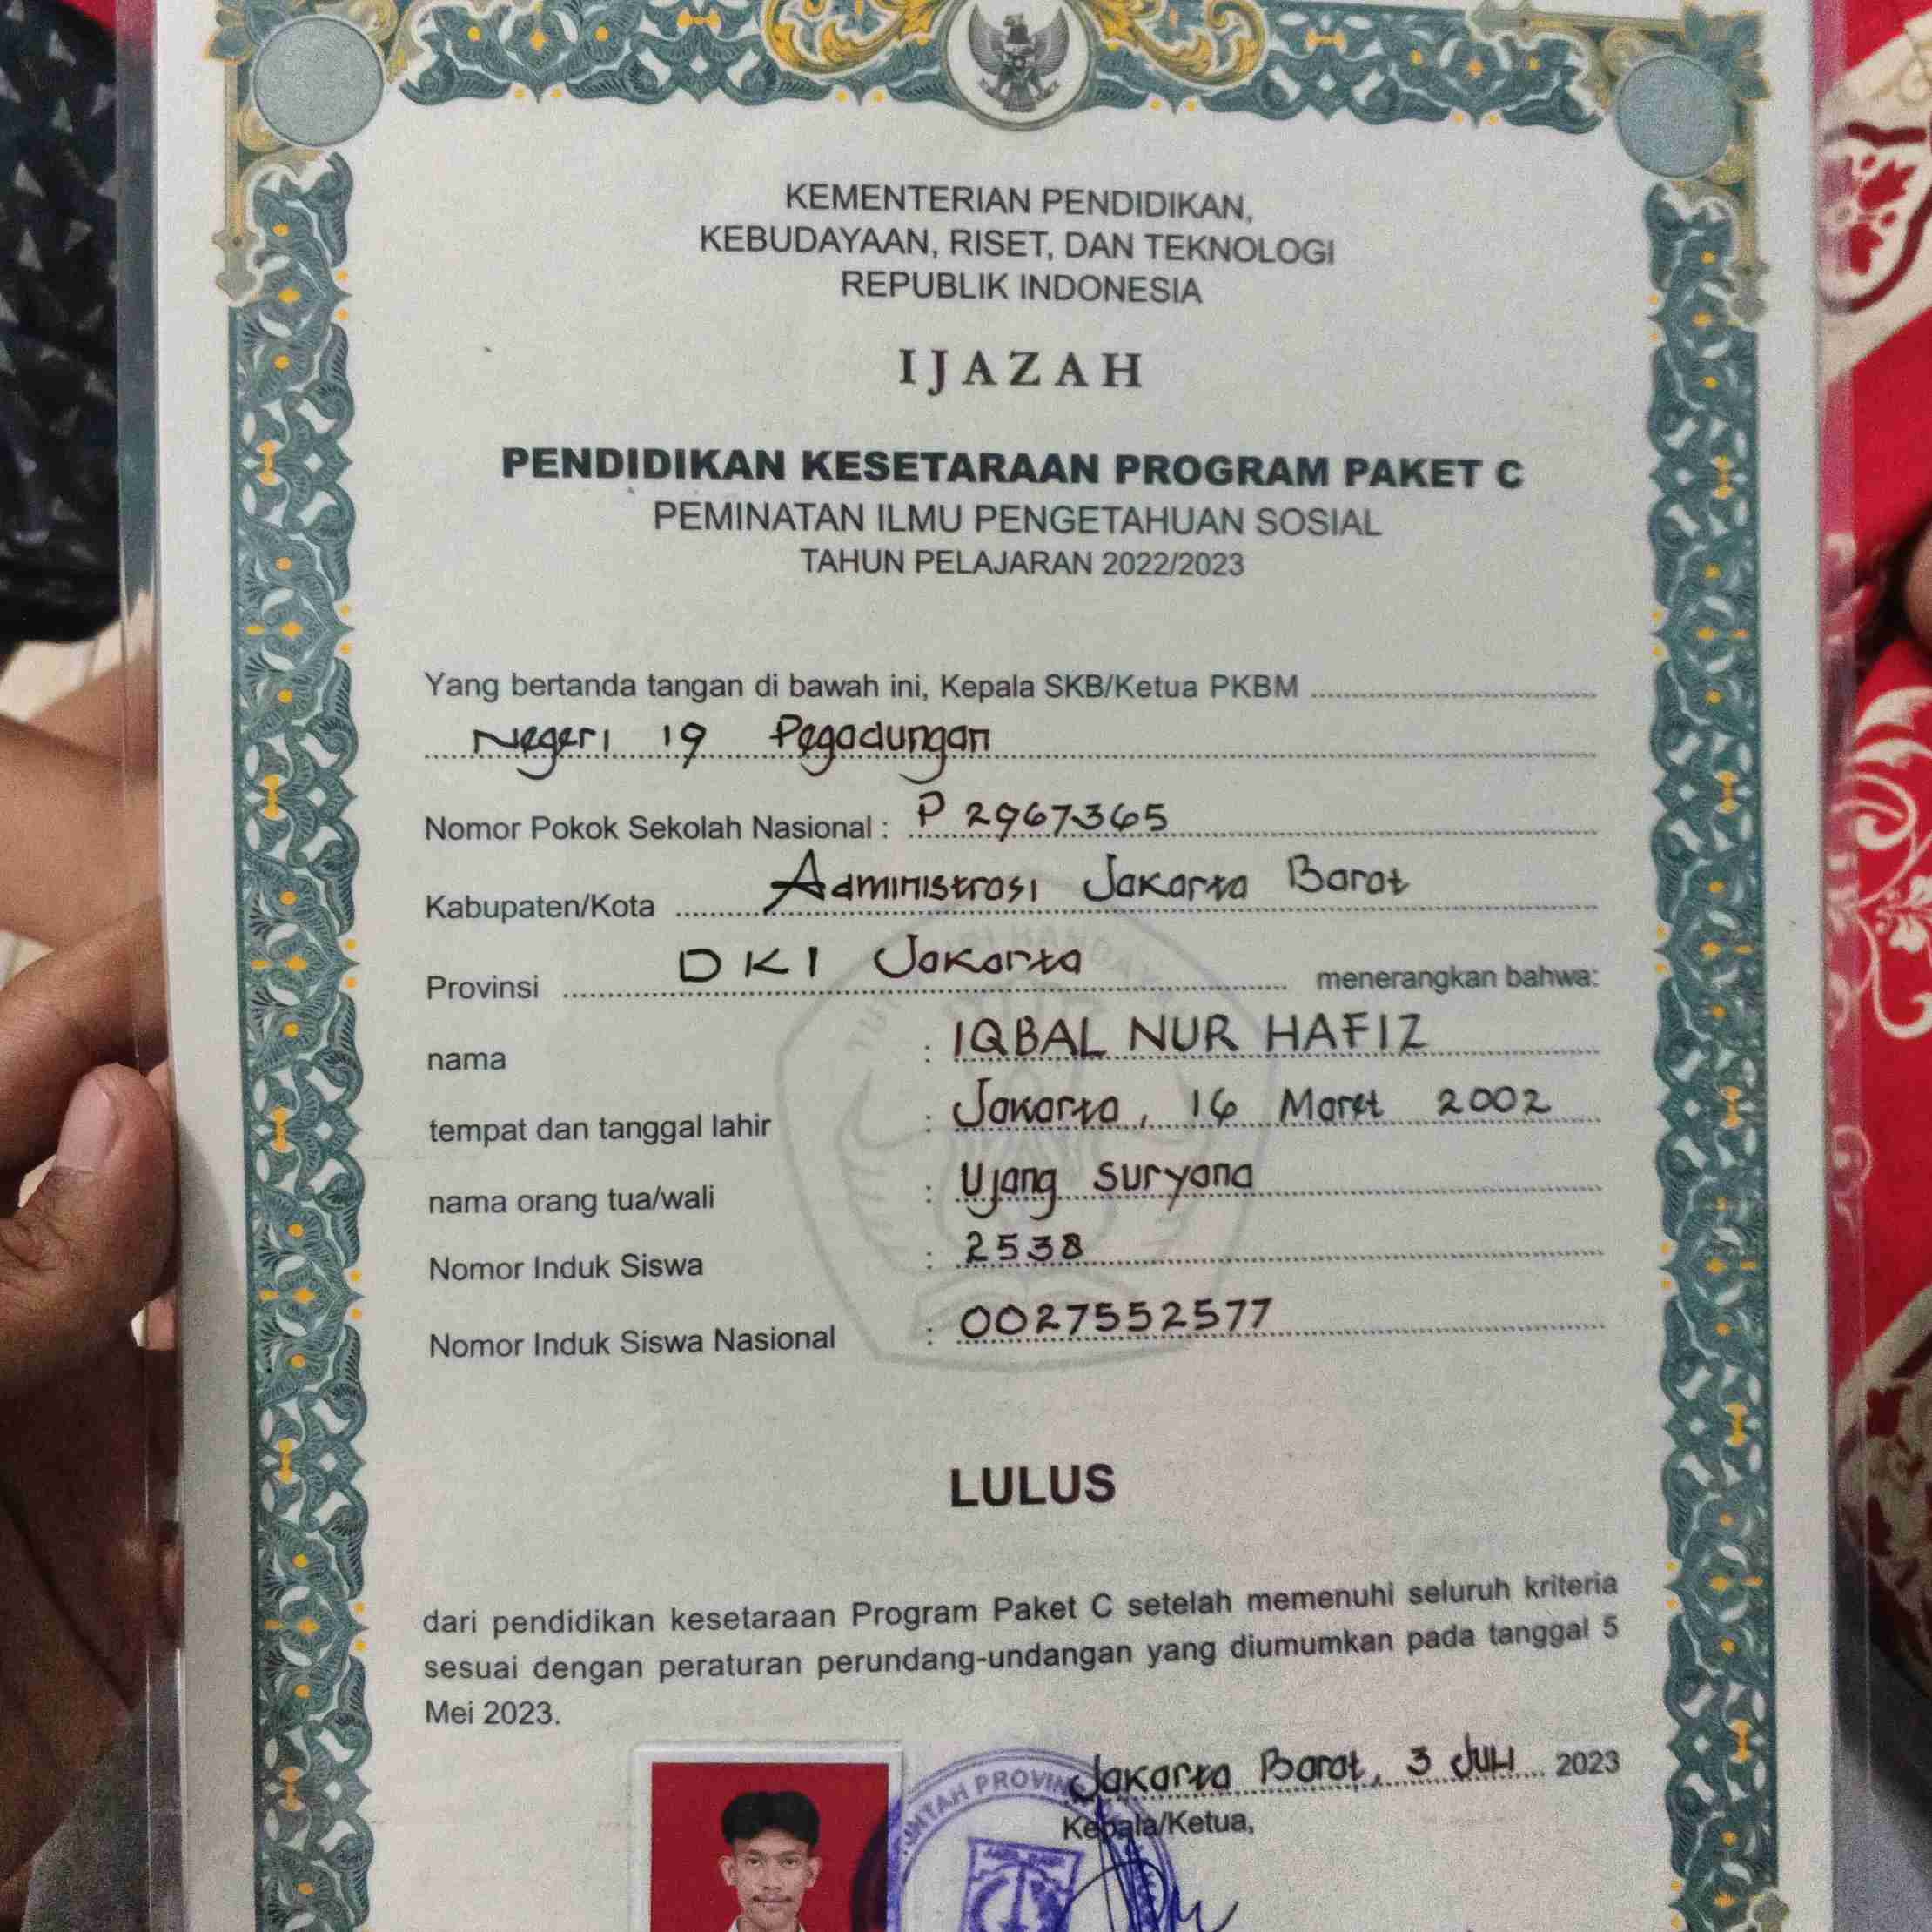 KEMENTERIAN PENDIDIKAN,
KEBUDAYAAN, RISET, DAN TEKNOLOGI
REPUBLIK INDONESIA
IJAZAH
PENDIDIKAN KESETARAAN PROGRAM PAKET C
PEMINATAN ILMU PENGETAHUAN SOSIAL
TAHUN PELAJARAN 2022/2023
Yang bertanda tangan di bawah ini, Kepala SKB/Ketua PKBM
Negeri 19 Pegadungan
Nomor Pokok Sekolah Nasional : P 2967365
Kabupaten/Kota Administrasi Jakarta Barat
Provinsi DKI Jakarta menerangkan bahwa:
nama : IQBAL NUR HAFIZ
tempat dan tanggal lahir : Jakarta, 16 Maret 2002
nama orang tua/wali : Ujang Suryana
Nomor Induk Siswa : 2538
Nomor Induk Siswa Nasional : 0027552577
LULUS
dari pendidikan kesetaraan Program Paket C setelah memenuhi seluruh kriteria
sesuai dengan peraturan perundang-undangan yang diumumkan pada tanggal 5
Mei 2023.
Jakarta Barat, 3 Juli 2023
Kepala/Ketua,